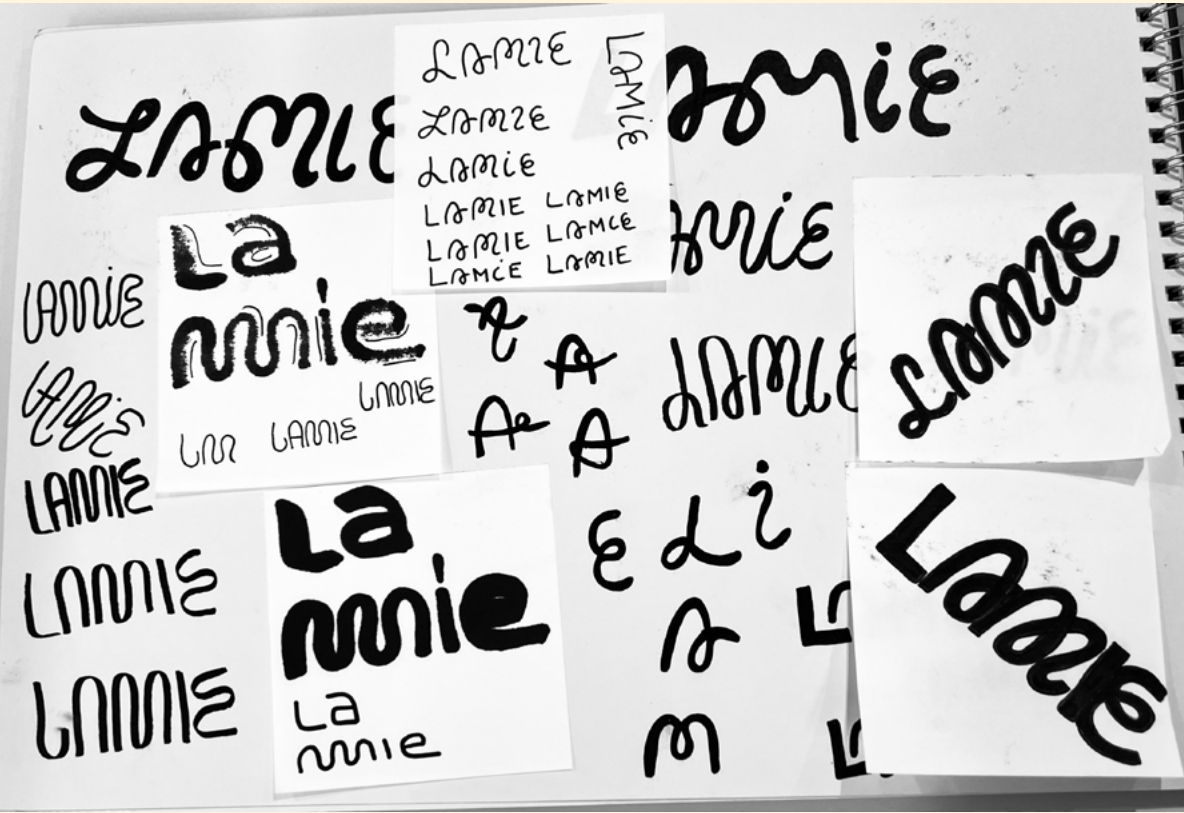 LAMIE
LAMIE
LAMIE
LAMIE
LAMIE
LAMIE LAMIE
LAMIE LAMIE
LAMIE LAMIE
LAMIE
AMIE
AMIE
LAMIE
La
mie
LAMIE
LAMIE
LAMIE
LAMIE
LAMIE
LAMIE
LAMIE
LAMIE
A
A
A
E L i
A
M
La
mie
La
mie
LAMIE